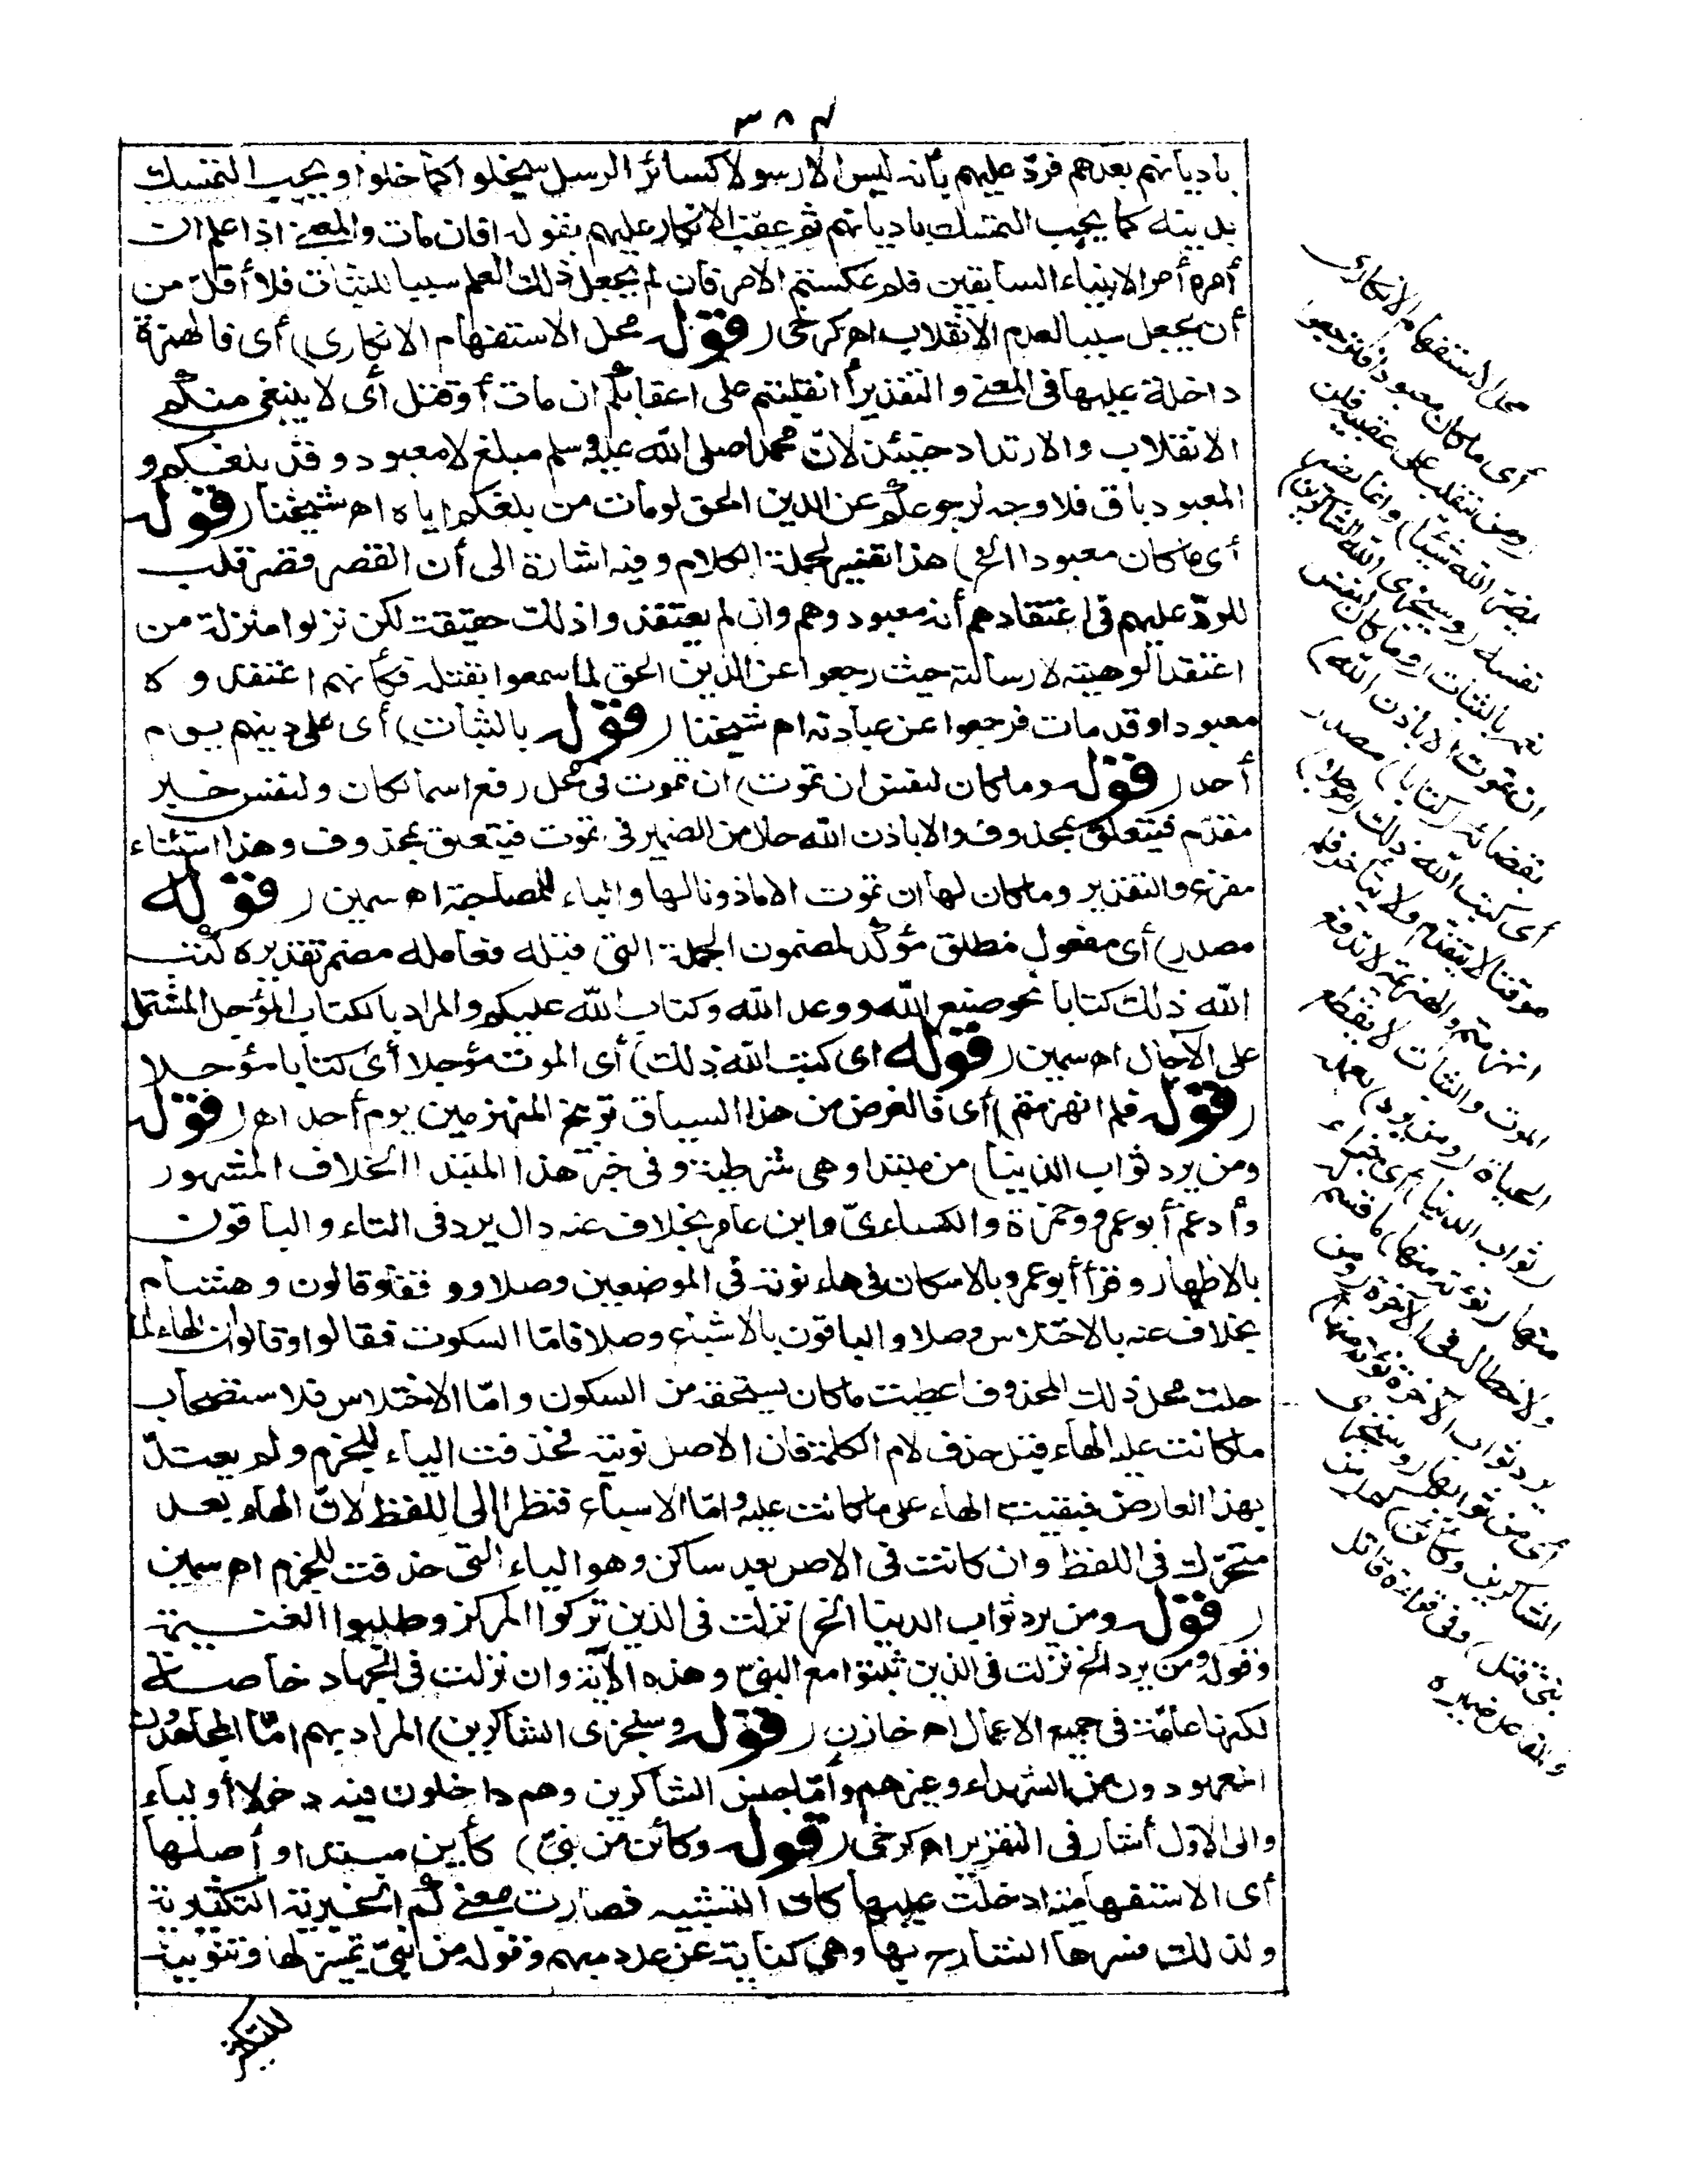 ٣٨٤
بأديانهم بعدهم فردّ عليهم بأنه ليس الا رسولا كسائر الرسل سيخلو كما خلوا ويجب التمسك
بدينه كما يجب التمسك بأديانهم ثم عقب الانكار عليهم بقوله افان مات والمعنى اذا علم ان
أمره أمر الانبياء السابقين فلم عكستم الامر فان لم يجعل ذلك العلم سببا للثبات فلا أقل من
أن يجعل سببا لعدم الانقلاب اهـ كرخى (قوله محل الاستفهام الانكارى) أى فالهمزة
داخلة عليها فى المعنى والتقدير أأنقلبتم على اعقابكم ان مات أو قتل أى لا ينبغى منكم
الانقلاب والارتداد حينئذ لانّ محمدا صلى الله عليه وسلم مبلغ لا معبود وقد بلغكم و
المعبود باق فلا وجه لرجوعكم عن الدين الحق لو مات من بلغكم اياه اهـ شيخنا (قوله
أى ما كان معبودا الخ) هذا تفسير لجملة الكلام وفيه اشارة الى أن القصر قصر قلب
للردّ عليهم فى اعتقادهم أنه معبود وهم وان لم يعتقدوا ذلك حقيقة لكن نزلوا منزلة من
اعتقد ألوهيته لا رسالته حيث رجعوا عن الدين الحق لما سمعوا بقتله فكأنهم اعتقدوه
معبودا وقد مات فرجعوا عن عبادته اهـ شيخنا (قوله بالثبات) أى على دينهم يوم
أحد (قوله وما كان لنفس ان تموت) ان تموت فى محل رفع اسما لكان ولنفس خبر
مقدّم فيتعلق بمحذوف والا باذن الله حال من الضمير فى تموت فيتعلق بمحذوف وهذا استثناء
مفرغ والتقدير وما كان لها ان تموت الا مأذونا لها والباء للمصاحبة اهـ سمين (قوله
مصدر) أى مفعول مطلق مؤكد لمضمون الجملة التى قبله فعامله مضمر تقديره كتب
الله ذلك كتابا نحو صنع الله ووعد الله وكتاب الله عليكم والمراد بالكتاب المؤجل المشتمل
على الآجال اهـ سمين (قوله اى كتب الله ذلك) أى الموت مؤجلا أى كتابا مؤجلا
(قوله فلم انهزمتم) أى فالغرض من هذا السياق توبيخ المنهزمين يوم أحد اهـ (قوله
ومن يرد ثواب الدنيا) من مبتدا وهى شرطية وفى خبر هذا المبتدا الخلاف المشهور
وأدغم أبو عمرو وحمزة والكسائىّ وابن عامر بخلاف عنه دال يرد فى الثاء والباقون
بالاظهار وقرأ أبو عمرو بالاسكان فى هاء نؤته فى الموضعين وصلا ووقفا وقالون وهشام
بخلاف عنه بالاختلاس وصلا والباقون بالاشباع وصلا فامّا السكون فقالوا وقالوا ان الهاء لما
حلت محل ذلك المحذوف اعطيت ما كان يستحقه من السكون وامّا الاختلاس فلاستصحاب
ما كانت عليه الهاء قبل حذف لام الكلمة فان الاصل نؤتيه فحذفت الياء للجزم ولم يعتدّ
بهذا العارض فبقيت الهاء على ما كانت عليه وامّا الاشباع فنظرا الى اللفظ لانّ الهاء بعد
متحرّك فى اللفظ وان كانت فى الاصل بعد ساكن وهو الياء التى حذفت للجزم اهـ سمين
(قوله ومن يرد ثواب الدنيا الخ) نزلت فى الذين تركوا المركز وطلبوا الغنيمة
وقوله ومن يرد الخ نزلت فى الذين ثبتوا مع النبىّ وهذه الآية وان نزلت فى الجهاد خاصة
لكنها عامّة فى جميع الاعمال اهـ خازن (قوله وسنجزى الشاكرين) المراد بهم امّا المجاهدون
المعهودون من الشهداء وغيرهم وأمّا جنس الشاكرين وهم داخلون فيه دخولا أوليا
والى الاوّل أشار فى التقرير اهـ كرخى (قوله وكائن من نبىّ) كأين مبتدا وأصلها
أى الاستفهامية ادخلت عليها كاف التشبيه فصارت بمعنى كم الخبرية التكثيرية
ولذلك فسرها الشارح بها وهى كناية عن عدد مبهم وقوله من نبىّ تمييز لها وتنوينه
للتكثير
محل الاستفهام الانكارى
أى ما كان معبودا فترجعوا
(ومن ينقلب على عقبيه فلن
يضر الله شيئا) وانما يضر
نفسه (وسيجزى الله الشاكرين)
نعمه بالثبات (وما كان لنفس
ان تموت الا باذن الله)
بقضائه (كتابا) مصدر
أى كتب الله ذلك (مؤجلا)
موقتا لا يتقدّم ولا يتأخر فلم
انهزمتم والهزيمة لا تدفع
الموت والثبات لا يقطع
الحياة (ومن يرد) بعمله
(ثواب الدنيا) أى جزاء
منها (نؤته منها) ما قسم
ولا حظ له فى الآخرة (ومن
يرد ثواب الآخرة نؤته منها)
أى من ثوابها (وسنجزى
الشاكرين وكائن) كم (من
نبى قتل) وفى قراءة قاتل
والفاعل ضميره